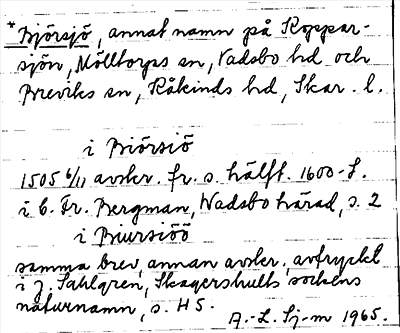 *Björsjö, annat namn på Koppar-
sjön, Mölltorps sn, Vadsbo hd och
Breviks sn, Kåkinds hd, Skar. l.
i Biörsiö
1505 6/11 avskr. fr. s. hälft. 1600-t.
i C. Fr. Bergman, Wadsbo härad, s. 2
i Biursiöö
samma brev, annan avskr., avtryckt
i J. Sahlgren, Skagershults sockens
naturnamn, s. H5.
A.-L. Sj-m 1965.